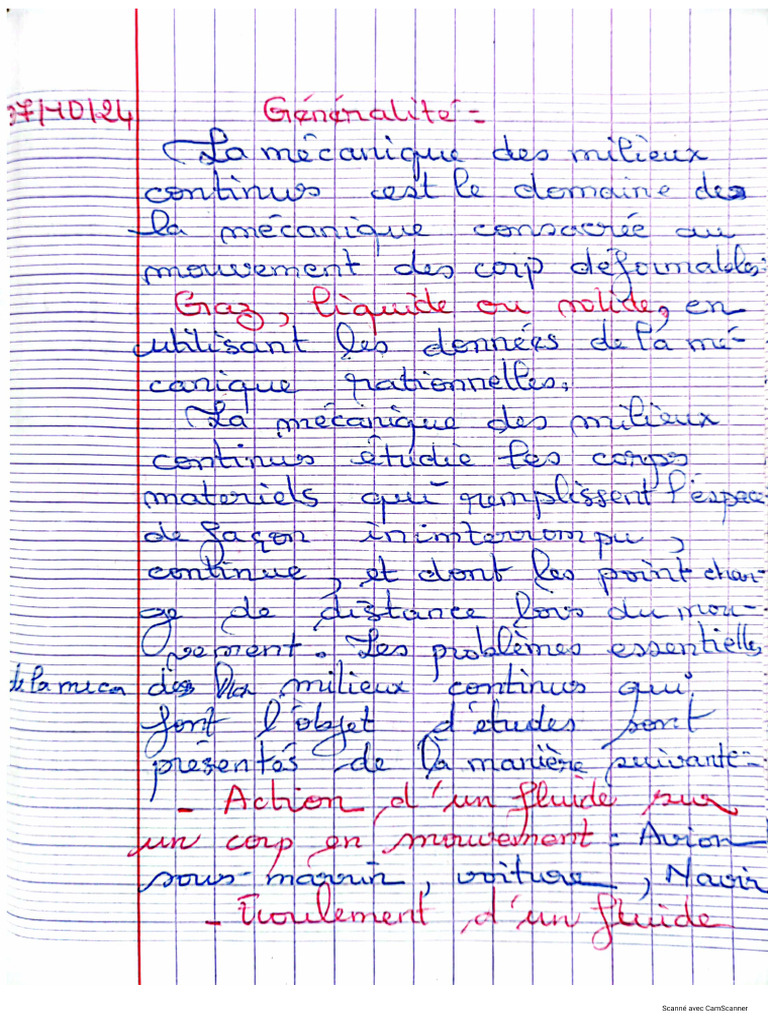 07/10/24 Généralité =
La mécanique des milieux
continus est le domaine des
la mécanique consacrée au
mouvement des corp déformables:
Graz, liquide ou solide, en
utilisant les données de la mé-
canique rationnelles.
La mécanique des milieux
continus étudie les corps
materiels qui remplissent l'espace
de façon inimterrompu,
continue, et dont les point chan-
ge de distance lors du mou-
vement. Les problèmes essentielles
de la meca des milieux continus qui
font l'objet d'études sont
présentés de la manière suivante =
- Action d'un fluide sur
un corp en mouvement = Avion
sous-marrin, voiture, Navir
- Ecoulement d'un fluide
Scanné avec CamScanner